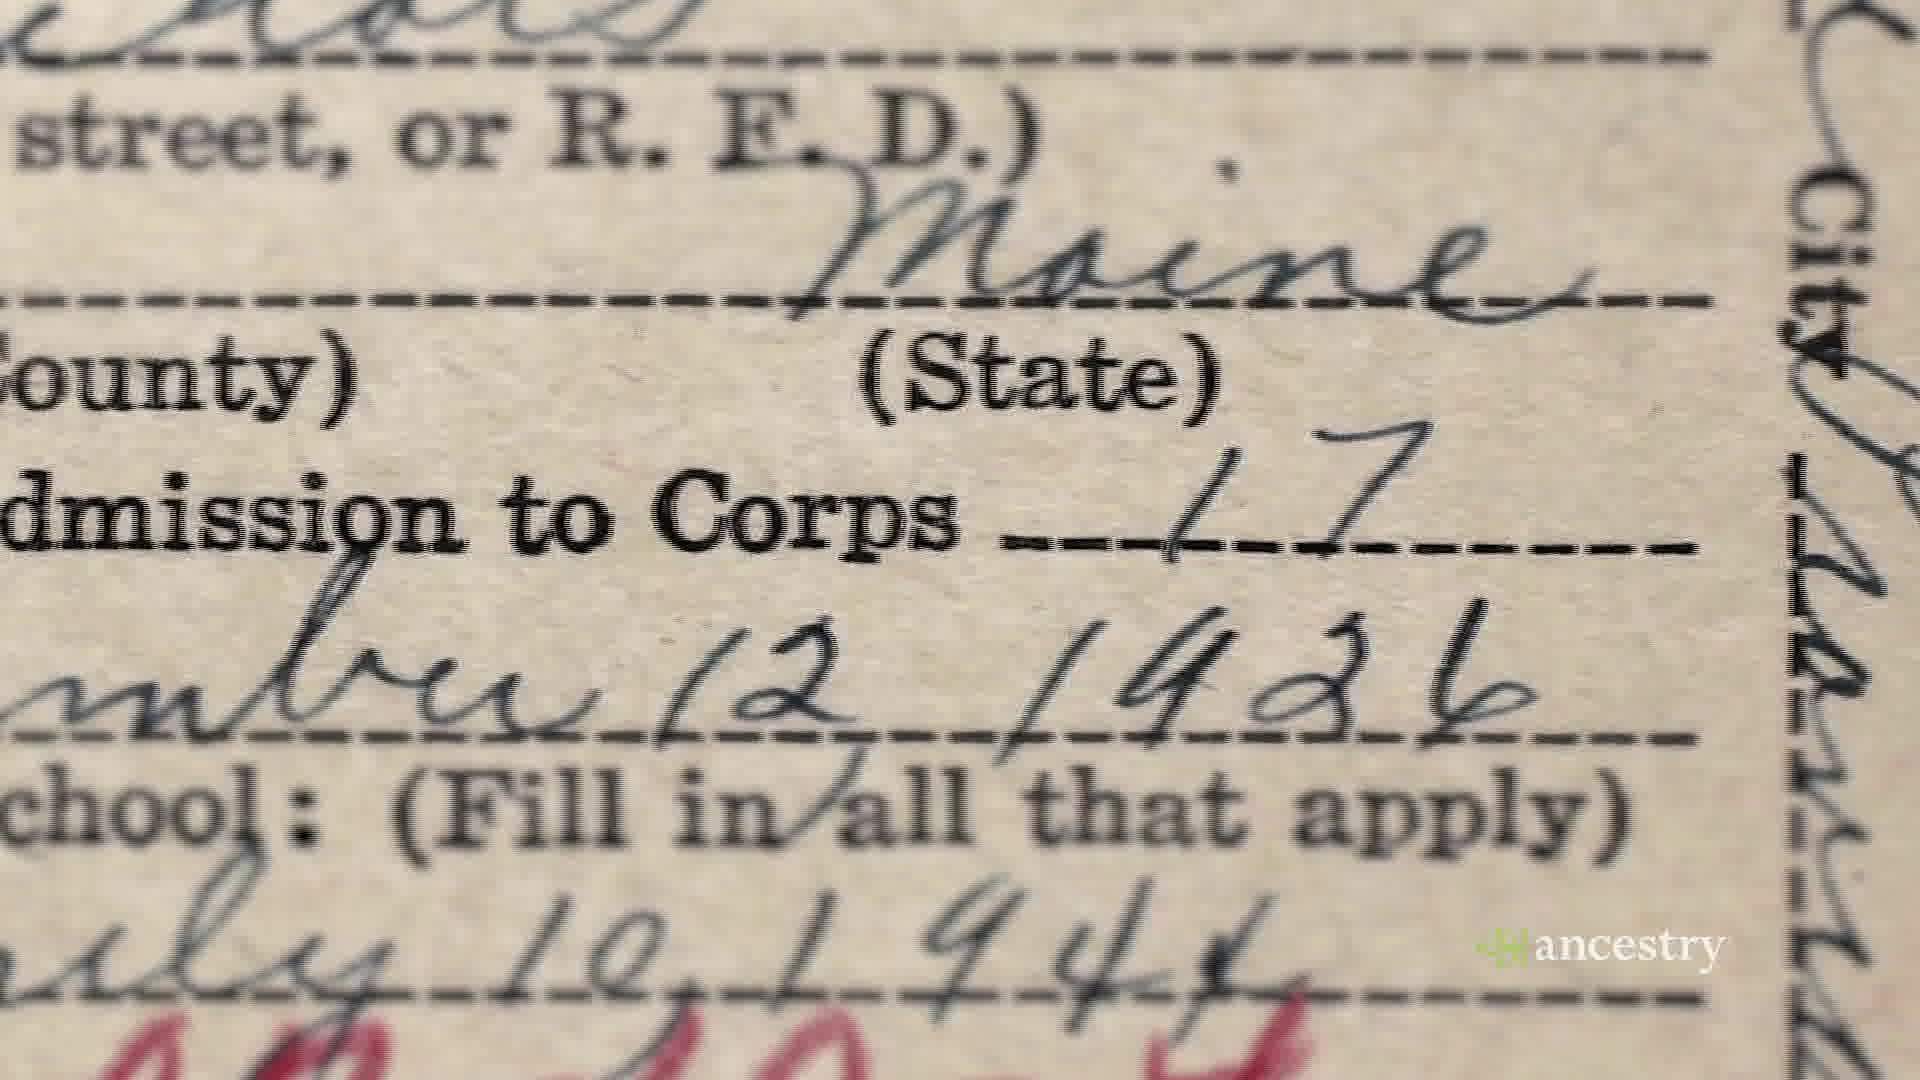 street, or R. F. D.)
Maine
ounty) (State)
dmission to Corps 17
mber 12 1926
chool: (Fill in all that apply)
10, 1944
City
ancestry